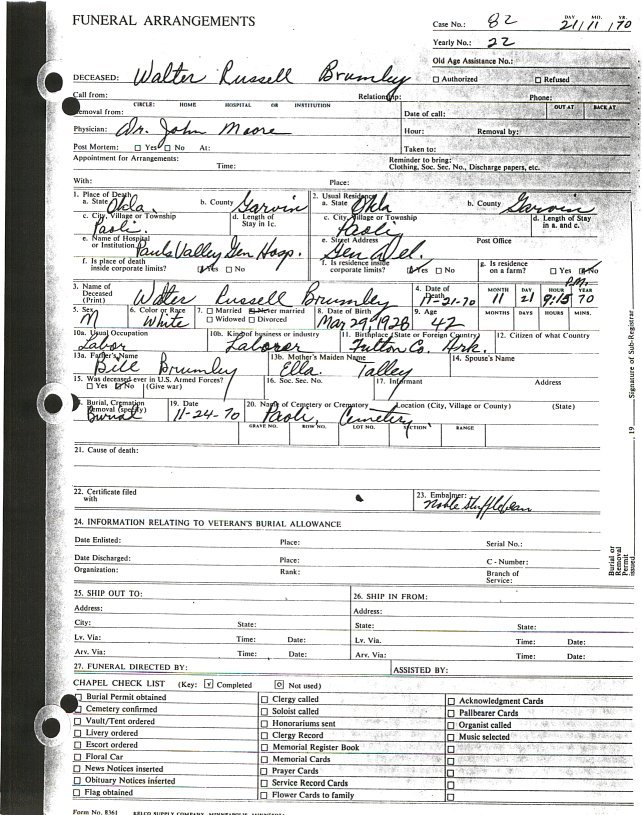 FUNERAL ARRANGEMENTS
Case No.: 82 DAY MO. YR. 21/11/70
Yearly No.: 22
Old Age Assistance No.:
DECEASED: Walter Russell Brumley
☐ Authorized ☐ Refused
Call from: Relationship: Phone:
CIRCLE: HOME HOSPITAL OR INSTITUTION
OUT AT BACK AT
Removal from: Date of call:
Physician: Dr. John Moore Hour: Removal by:
Post Mortem: ☐ Yes ☐ No At: Taken to:
Appointment for Arrangements: Time:
Reminder to bring:
Clothing, Soc. Sec. No., Discharge papers, etc.
With: Place:
1. Place of Death
a. State Okla. b. County Garvin
2. Usual Residence
a. State Okla b. County Garvin
c. City, Village or Township Paoli. d. Length of Stay in 1c.
c. City, Village or Township Paoli d. Length of Stay in a. and c.
e. Name of Hospital or Institution Pauls Valley Gen Hosp.
e. Street Address Gen Del. Post Office
f. Is place of death inside corporate limits? ☑ Yes ☐ No
f. Is residence inside corporate limits? ☑ Yes ☐ No
g. Is residence on a farm? ☐ Yes ☑ No
3. Name of Deceased (Print) Walter Russell Brumley
4. Date of Death 11-21-70
MONTH DAY HOUR YEAR
P.M.
11 21 9:15 70
5. Sex M 6. Color or Race White
7. ☐ Married ☑ Never married
☐ Widowed ☐ Divorced
8. Date of Birth Mar 29, 1928 9. Age 42
MONTHS DAYS HOURS MINS.
10a. Usual Occupation Labor
10b. Kind of business or industry Laborer
11. Birthplace (State or Foreign Country) Fulton Co. Ark.
12. Citizen of what Country
13a. Father's Name Bill Brumley
13b. Mother's Maiden Name Ella Talley
14. Spouse's Name
15. Was deceased ever in U.S. Armed Forces? ☐ Yes ☑ No (Give war)
16. Soc. Sec. No. 17. Informant Address
Burial, Cremation Removal (specify) Burial
19. Date 11-24-70
20. Name of Cemetery or Crematory Paoli, Cemetery
Location (City, Village or County) (State)
GRAVE NO. ROW NO. LOT NO. SECTION RANGE
21. Cause of death:
22. Certificate filed with
23. Embalmer: Noble Stufflebean
24. INFORMATION RELATING TO VETERAN'S BURIAL ALLOWANCE
Date Enlisted: Place: Serial No.:
Date Discharged: Place: C - Number:
Organization: Rank: Branch of Service:
25. SHIP OUT TO: 26. SHIP IN FROM:
Address: Address:
City: State: State: State:
Lv. Via: Time: Date: Lv. Via. Time: Date:
Arv. Via: Time: Date: Arv. Via: Time: Date:
27. FUNERAL DIRECTED BY: ASSISTED BY:
CHAPEL CHECK LIST (Key: ☑ Completed ☐ Not used)
☐ Burial Permit obtained
☐ Cemetery confirmed
☐ Vault/Tent ordered
☐ Livery ordered
☐ Escort ordered
☐ Floral Car
☐ News Notices inserted
☐ Obituary Notices inserted
☐ Flag obtained
☐ Clergy called
☐ Soloist called
☐ Honorariums sent
☐ Clergy Record
☐ Memorial Register Book
☐ Memorial Cards
☐ Prayer Cards
☐ Service Record Cards
☐ Flower Cards to family
☐ Acknowledgment Cards
☐ Pallbearer Cards
☐ Organist called
☐ Music selected
Form No. 8361 KELCO SUPPLY COMPANY, MINNEAPOLIS, MINNESOTA
Burial or Removal Permit issued 19 Signature of Sub-Registrar